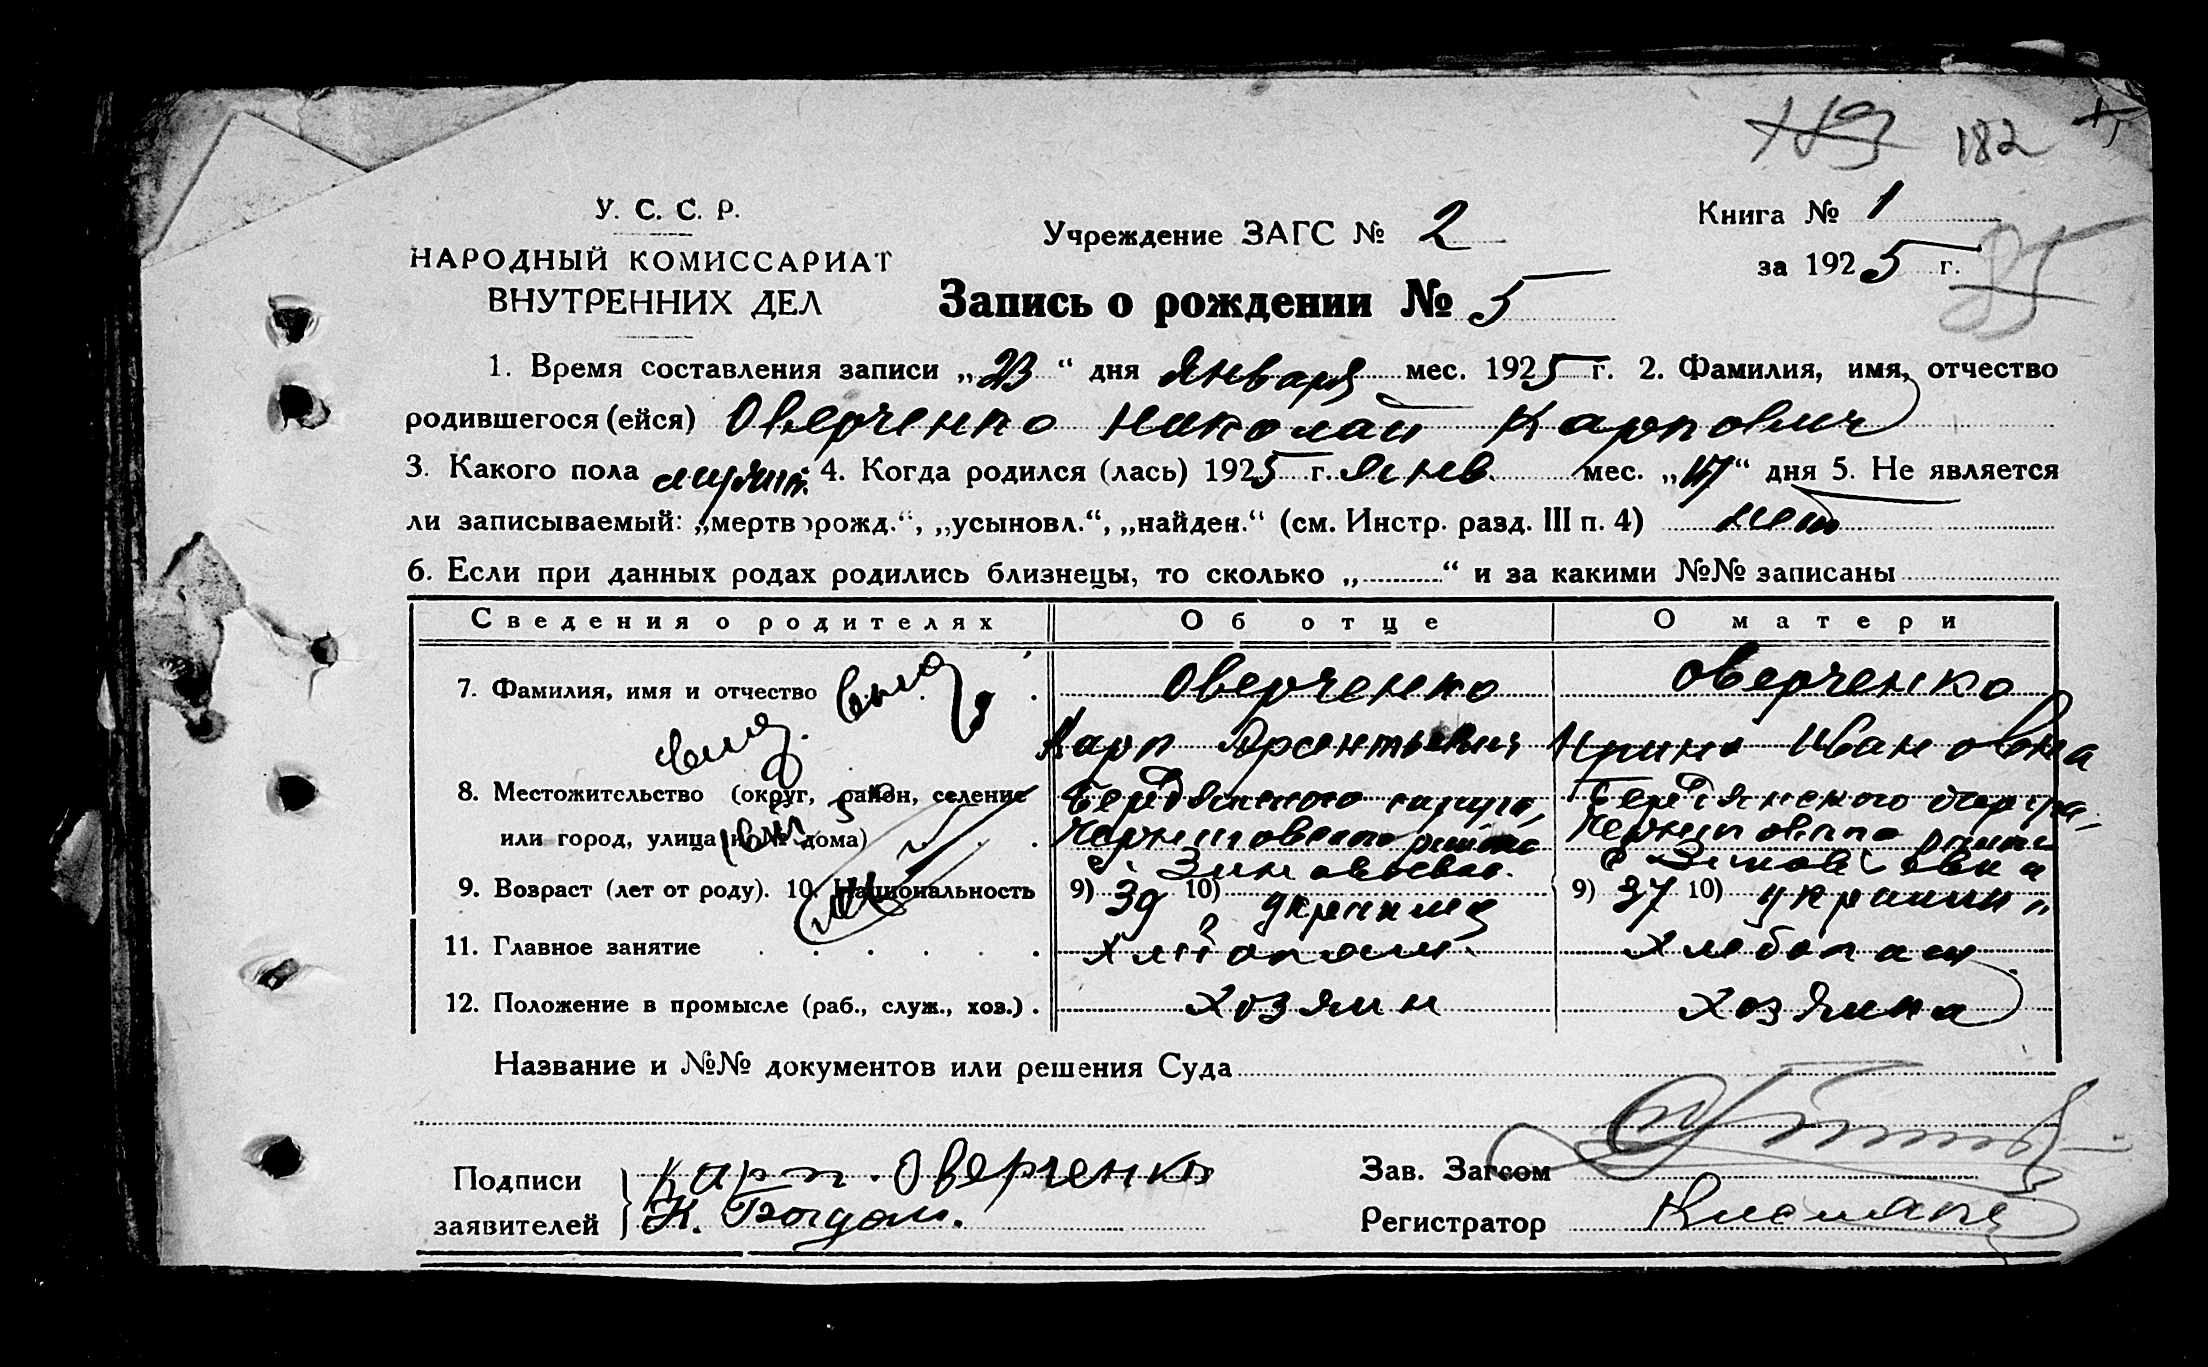 182
У. С. С. Р.
НАРОДНЫЙ КОМИССАРИАТ
ВНУТРЕННИХ ДЕЛ
Учреждение ЗАГС № 2
Книга № 1
за 1925 г.
85
Запись о рождении № 5
1. Время составления записи „23“ дня Января мес. 1925 г. 2. Фамилия, имя, отчество
родившегося (ейся) Оверченко Николай Карпович
3. Какого пола мужск. 4. Когда родился (лась) 1925 г. Янв. мес. „17“ дня 5. Не является
ли записываемый: „мертворожд.“, „усыновл.“, „найден.“ (см. Инстр. разд. III п. 4) нет
6. Если при данных родах родились близнецы, то сколько „..........“ и за какими №№ записаны
Сведения о родителях Об отце О матери
7. Фамилия, имя и отчество Оверченко Оверченко
Карп Арсентьевич Ирина Ивановна
8. Местожительство (округ, район, селение Бердянского округа, Бердянского округа
или город, улица и № дома) Черниговского района Черниговского района
с. Зиновьевка. с. Зиновьевка
9. Возраст (лет от роду). 10. Национальность 9) 39 10) украинец 9) 37 10) украин
11. Главное занятие хлебопаш. хлебопаш.
12. Положение в промысле (раб., служ., хоз.) хозяин хозяина
Название и №№ документов или решения Суда
Подписи Карп Оверченко
заявителей К. Богдан.
Зав. Загсом
Регистратор